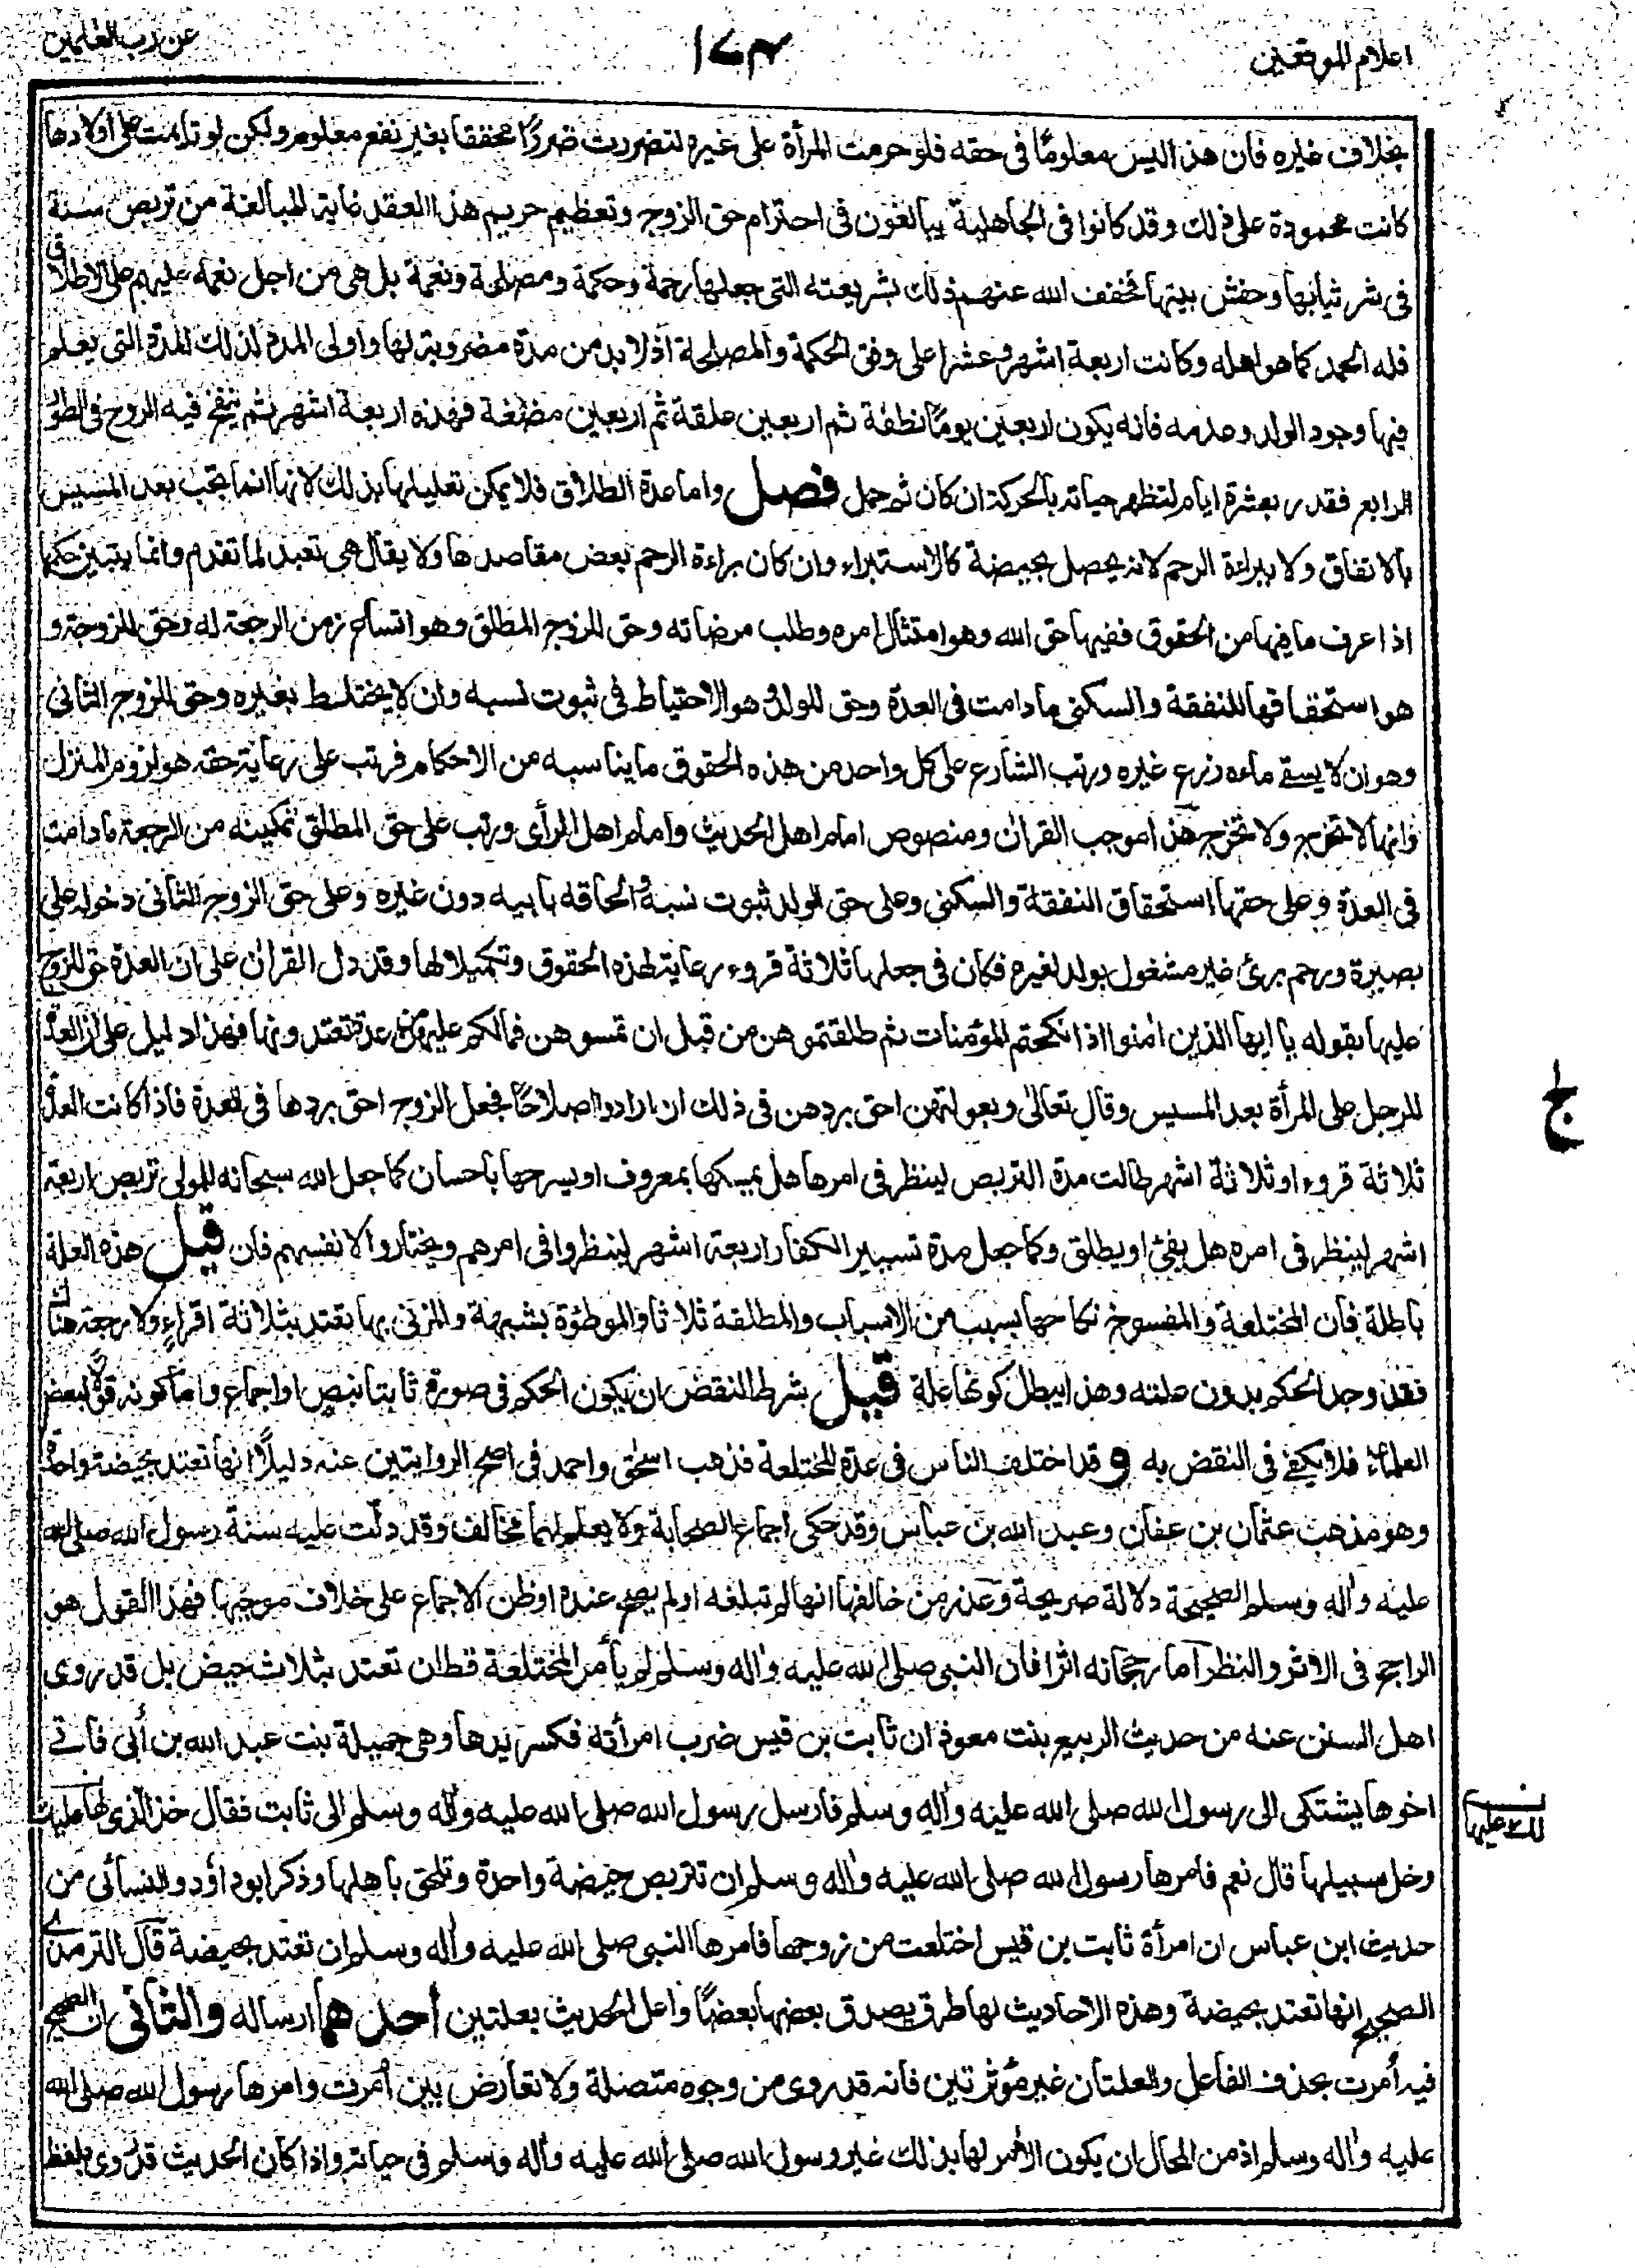 اعلام الموقعين
١٧٣
عن رب العلمين
بخلاف غيره فان هذا ليس معلومًا فى حقه فلو حرمت المرأة على غيره لتضررت ضررًا محققا بغير نفع معلوم ولكن لو تأيمت على اولادها
كانت محمودة على ذلك وقد كانوا فى الجاهلية يبالغون فى احترام حق الزوج وتعظيم حريم هذا العقد غاية المبالغة من تربص سنة
فى شر ثيابها وحفش بيتها فخفف الله عنهم ذلك بشريعته التى جعلها رحمة وحكمة ومصلحة ونعمة بل هى من اجل نعمه عليهم على الاطلاق
فله الحمد كما هو اهله وكانت اربعة اشهر وعشرا على وفق الحكمة والمصلحة اذ لا بد من مدة مضروبة لها واولى المدد لذلك المدة التى يعلم
فيها وجود الولد وعدمه فانه يكون اربعين يومًا نطفة ثم اربعين علقة ثم اربعين مضغة فهذه اربعة اشهر ثم ينفخ فيه الروح فى الطور
الرابع فقدر بعشرة ايام لتظهر حياته بالحركة ان كان ثم حمل فصل واما عدة الطلاق فلا يمكن تعليلها بذلك لانها انما تجب بعد المسيس
بالاتفاق ولا ببراءة الرحم لانه يحصل بحيضة كالاستبراء وان كان براءة الرحم بعض مقاصدها ولا يقال هى تعبد لما تقدم وانما يتبين حكمها
اذا عرف ما فيها من الحقوق ففيها حق الله وهو امتثال امره وطلب مرضاته وحق للزوج المطلق وهو اتساع زمن الرجعة له وحق للزوجة و
هو استحقاقها للنفقة والسكنى ما دامت فى العدة وحق للولد وهو الاحتياط فى ثبوت نسبه وان لا يختلط بغيره وحق للزوج الثانى
وهو ان لا يسقى ماءه زرع غيره ورتب الشارع على كل واحد من هذه الحقوق ما يناسبه من الاحكام فرتب على رعاية حقه هو لزوم المنزل
وانها لا تخرج ولا تخرج هذا موجب القران ومنصوص امام اهل الحديث وامام اهل الرأى ورتب على حق المطلق تمكينه من الرجعة ما دامت
فى العدة وعلى حقها استحقاق النفقة والسكنى وعلى حق الولد ثبوت نسبه والحاقه بابيه دون غيره وعلى حق الزوج الثانى دخوله على
بصيرة ورحم برئ غير مشغول بولد لغيره فكان فى جعلها ثلاثة قروء رعاية لهذه الحقوق وتكميلا لها وقد دل القران على ان العدة حق للزوج
عليها بقوله يا ايها الذين امنوا اذا نكحتم المؤمنات ثم طلقتموهن من قبل ان تمسوهن فما لكم عليهن من عدة تعتدونها فهذا دليل على ان العدة
للرجل على المرأة بعد المسيس وقال تعالى وبعولتهن احق بردهن فى ذلك ان ارادوا اصلاحًا فجعل الزوج احق بردها فى العدة فاذا كانت العدة
ثلاثة قروء او ثلاثة اشهر طالت مدة التربص لينظر فى امرها هل يمسكها بمعروف او يسرحها باحسان كما جعل الله سبحانه للمولى تربص اربعة
اشهر لينظر فى امره هل يفئ او يطلق وكما جعل مدة تسيير الكفار اربعة اشهر لينظروا فى امرهم ويختاروا لانفسهم فان قيل هذه العلة
باطلة فان المختلعة والمفسوخ نكاحها بسبب من الاسباب والمطلقة ثلاثا والموطؤة بشبهة والمزنى بها تعتد بثلاثة اقراء ولا رجعة هناك
فقد وجد الحكم بدون علته وهذا يبطل كونها علة قيل شرط النقض ان يكون الحكم فى صورة ثابتا بنص او اجماع واما كونه قولا لبعض
العلماء فلا يكفى فى النقض به وقد اختلف الناس فى عدة المختلعة فذهب اسحق واحمد فى اصح الروايتين عنه دليلًا انها تعتد بحيضة واحدة
وهو مذهب عثمان بن عفان وعبد الله بن عباس وقد حكى اجماع الصحابة ولا يعلم لهما مخالف وقد دلت عليه سنة رسول الله صلى الله
عليه واله وسلم الصحيحة دلالة صريحة وعذر من خالفها انها لم تبلغه او لم يصح عنده او ظن الاجماع على خلاف موجبها فهذا القول هو
الراجح فى الاثر والنظر اما رجحانه اثرا فان النبى صلى الله عليه واله وسلم لم يأمر المختلعة قط ان تعتد بثلاث حيض بل قد روى
اهل السنن عنه من حديث الربيع بنت معوذ ان ثابت بن قيس ضرب امرأته فكسر يدها وهى جميلة بنت عبد الله بن أبى فاتى
اخوها يشتكى الى رسول الله صلى الله عليه واله وسلم فارسل رسول الله صلى الله عليه واله وسلم الى ثابت فقال خذ الذى لها عليك
وخل سبيلها قال نعم فامرها رسول الله صلى الله عليه واله وسلم ان تتربص حيضة واحدة وتلحق باهلها وذكر ابو داؤد والنسائى من
حديث ابن عباس ان امرأة ثابت بن قيس اختلعت من زوجها فامرها النبى صلى الله عليه واله وسلم ان تعتد بحيضة قال الترمذى
الصحيح انها تعتد بحيضة وهذه الاحاديث لها طرق يصدق بعضها بعضًا واعل الحديث بعلتين أحدهما ارساله والثانى ان الصحيح
فيه أمرت بحذف الفاعل والعلتان غير مؤثرتين فانه قد روى من وجوه متصلة ولا تعارض بين أمرت وامرها رسول الله صلى الله
عليه واله وسلم اذ من المحال ان يكون الآمر لها بذلك غير رسول الله صلى الله عليه واله وسلم فى حياته واذا كان الحديث قد روى بلفظ
ج